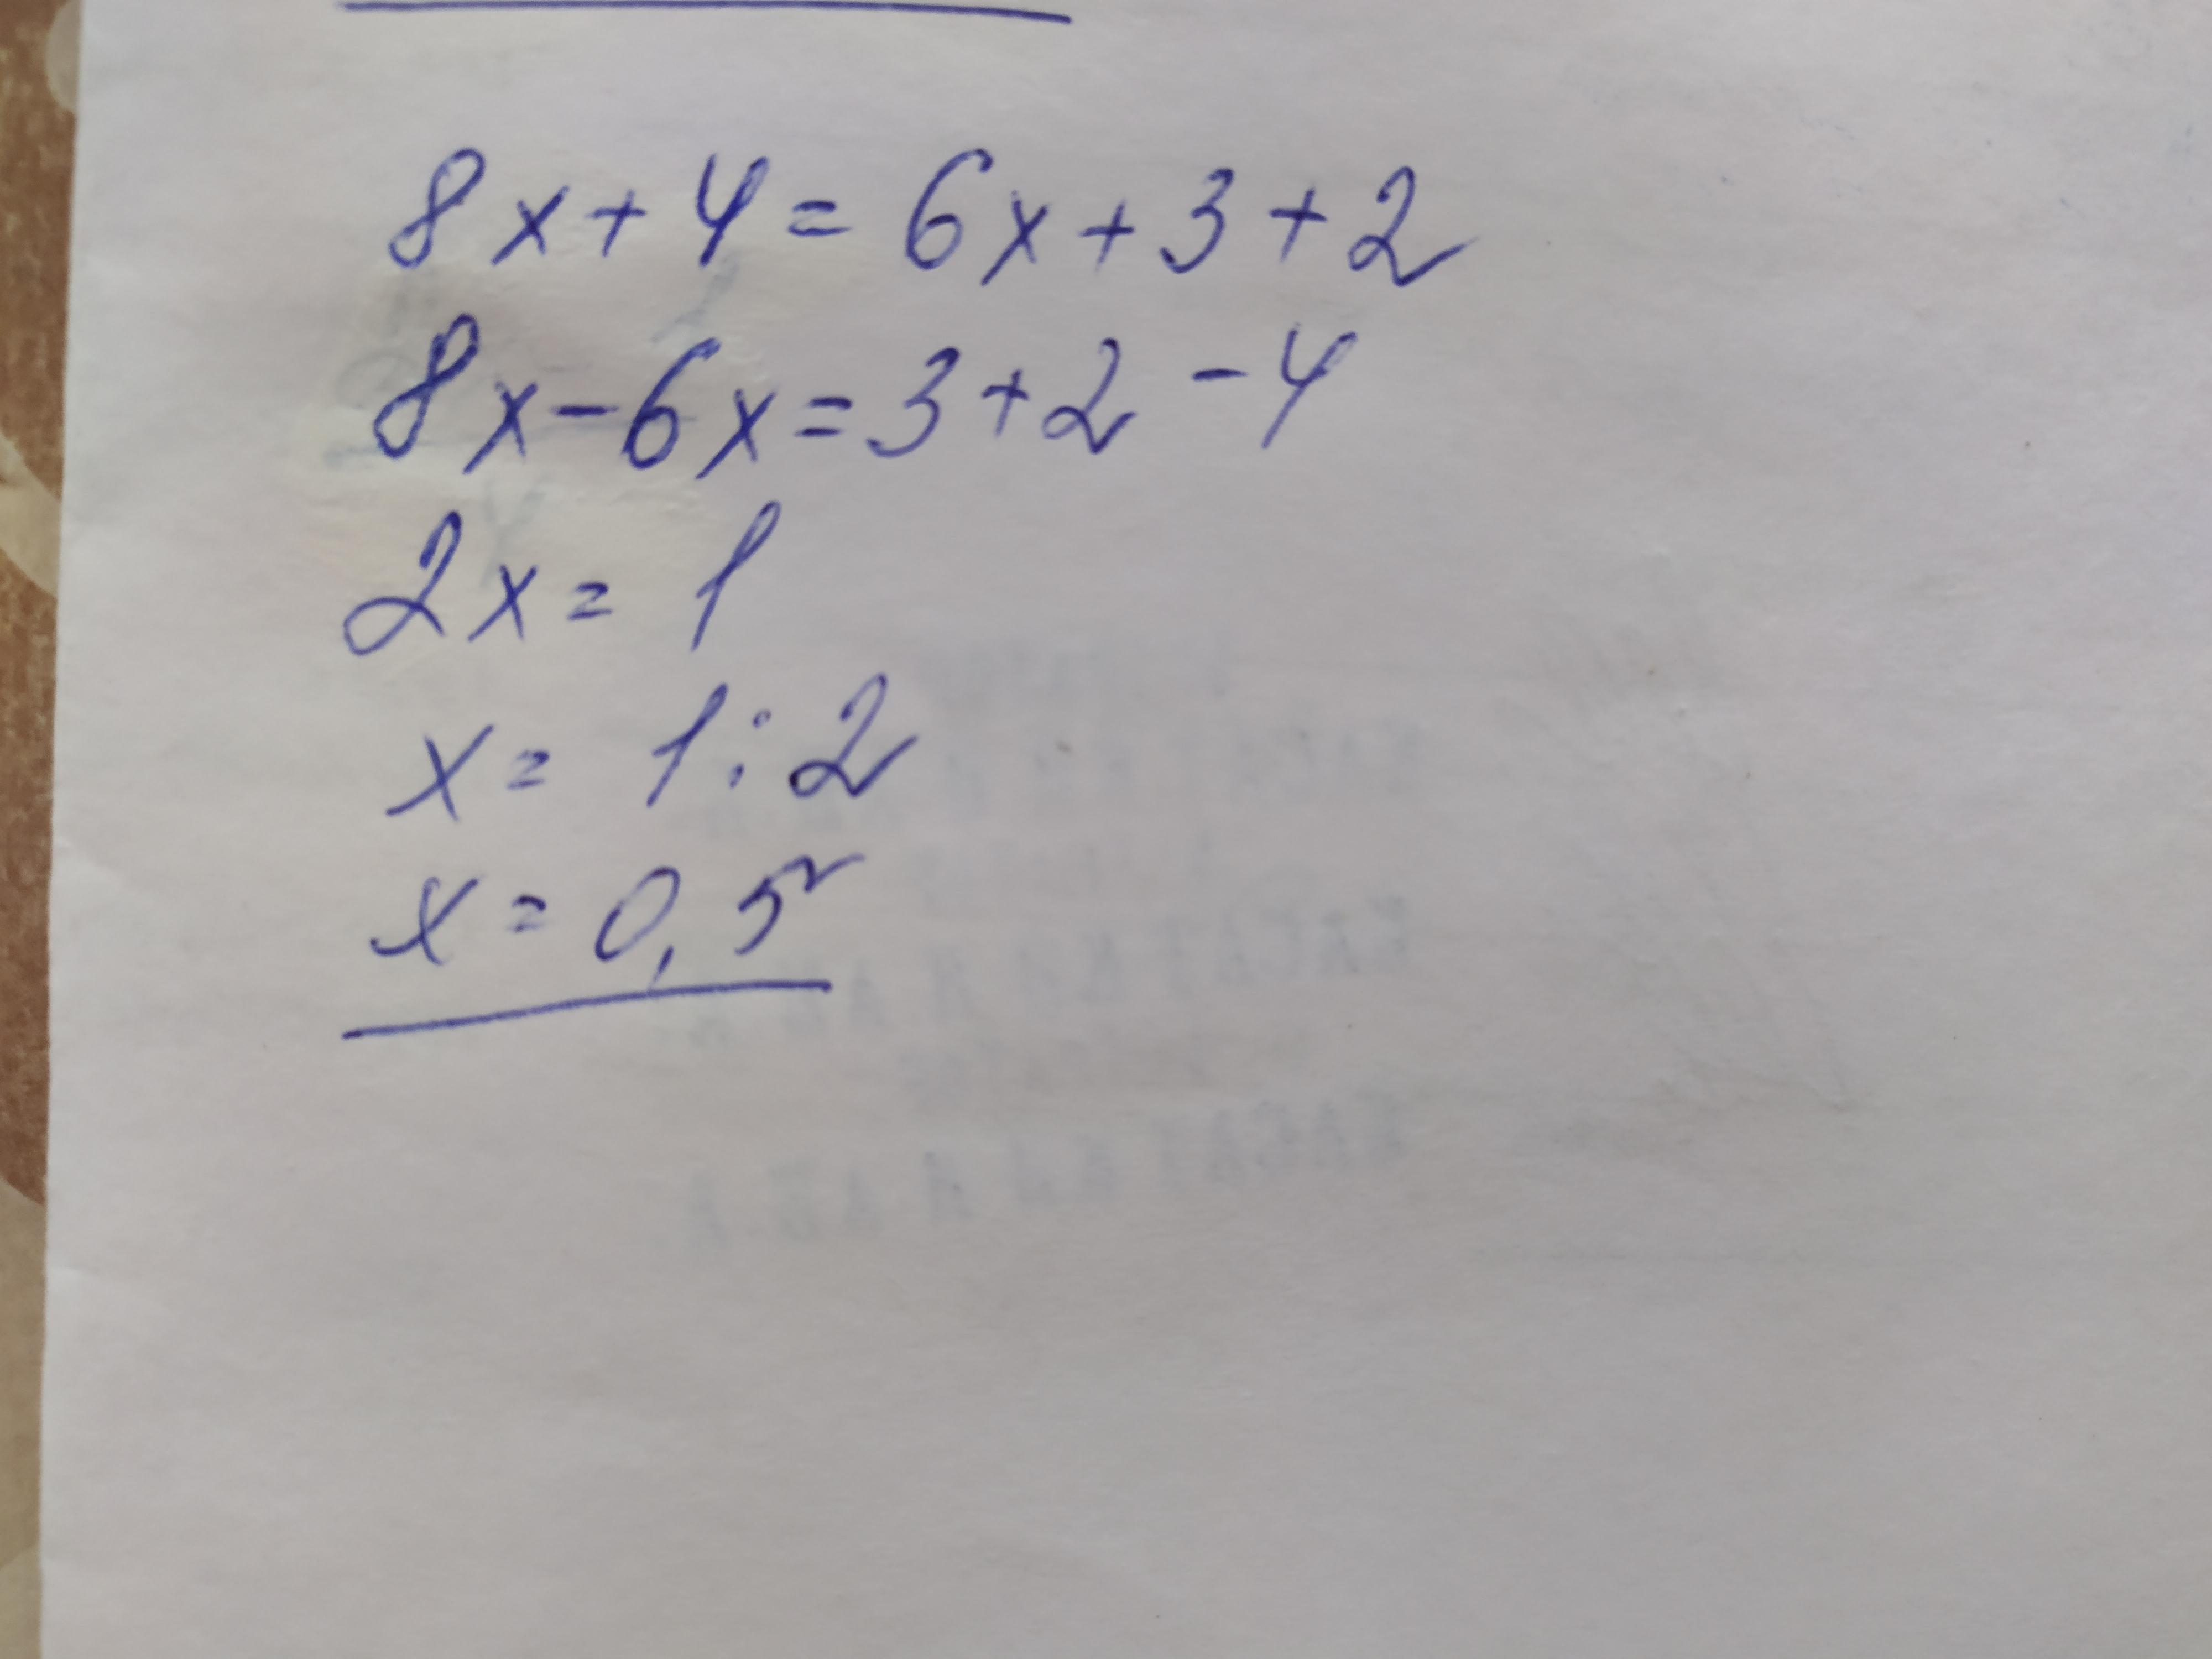 8x+4=6x+3+2
8x-6x=3+2-4
2x=1
x=1:2
x=0,5